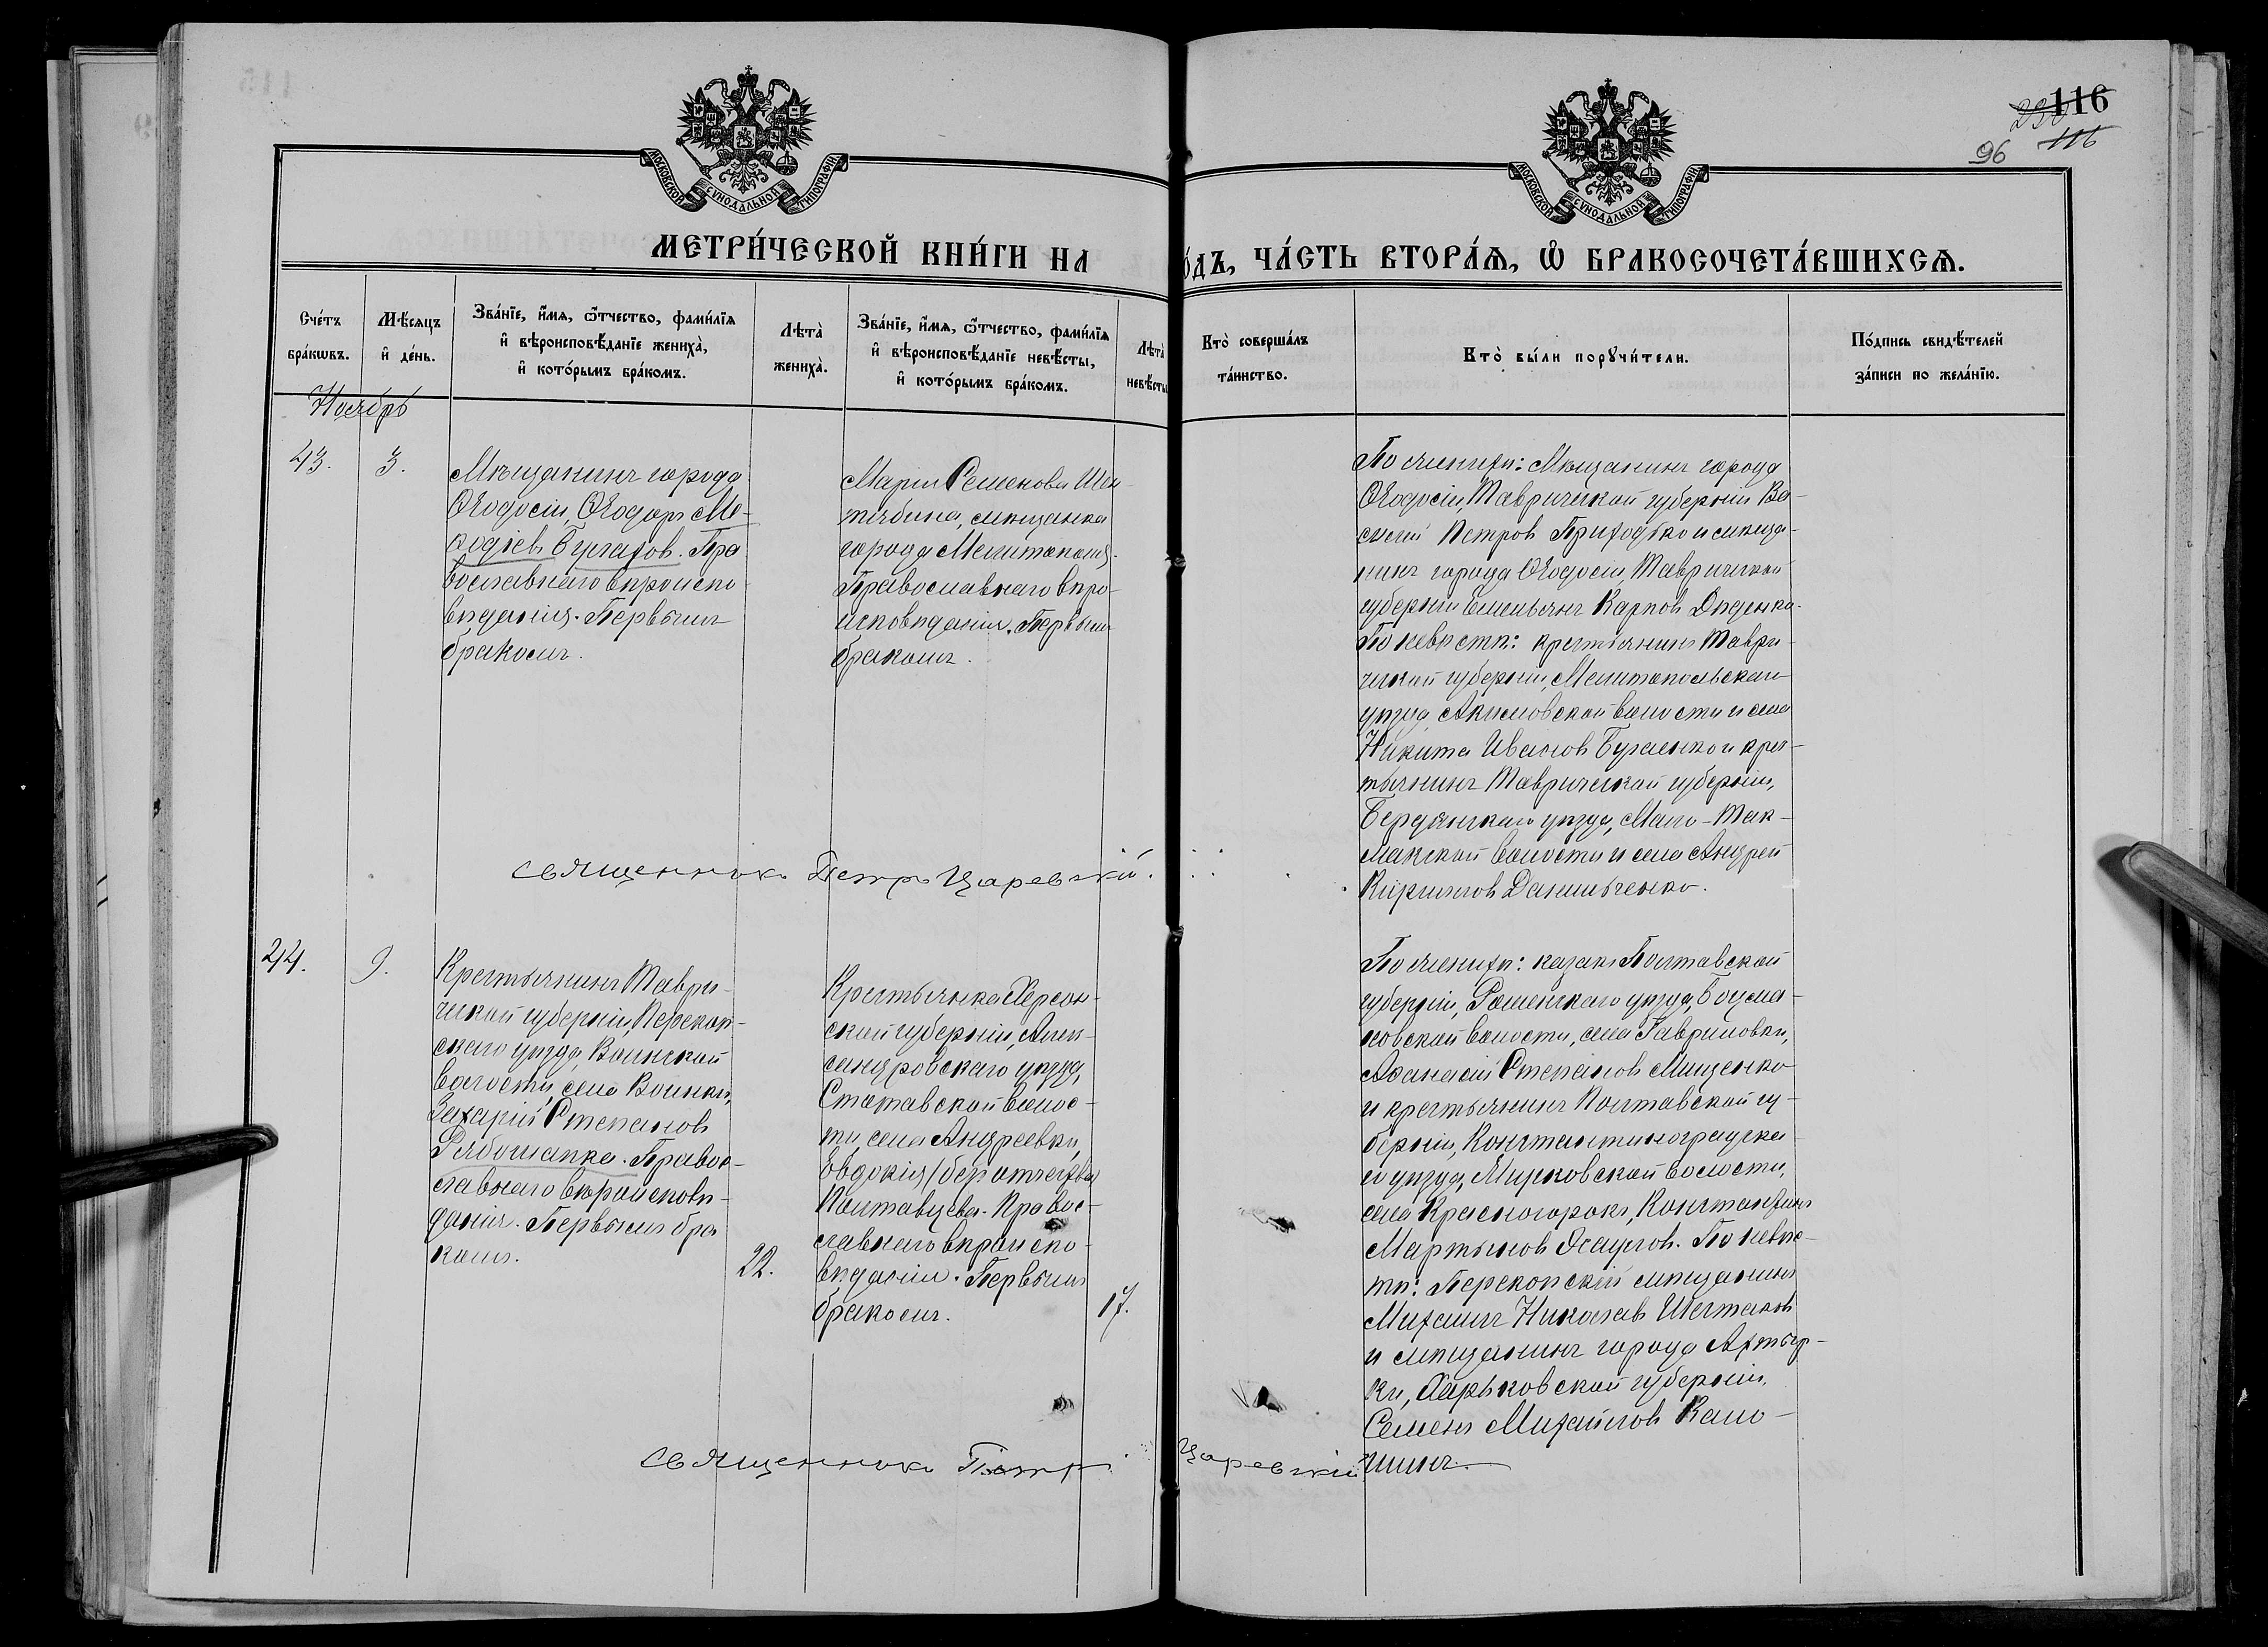 116
116
96
МОСКОВСКОЙ СУНОДАЛЬНОЙ ТИПОГРАФІИ
МОСКОВСКОЙ СУНОДАЛЬНОЙ ТИПОГРАФІИ
МЕТРИ́ЧЕСКОЙ КНИ́ГИ НА
О́ДЪ, ЧА́СТЬ ВТОРА́Ѧ, Ѡ҆ БРАКОСОЧЕТА́ВШИХСѦ.
Сче́тъ бра́кѡвъ.
Мѣ́сяцъ и҆ де́нь.
Зва́нїе, и҆́мя, ѻ҆́тчество, фами́лїя и҆ вѣроисповѣ́данїе жениха̀, и҆ кото́рымъ бра́комъ.
Лѣта̀ жениха̀.
Зва́нїе, и҆́мя, ѻ҆́тчество, фами́лїя и҆ вѣроисповѣ́данїе невѣ́сты, и҆ кото́рымъ бра́комъ.
Лѣта̀ невѣ́сты
Кто̀ соверша́лъ та́инство.
Кто̀ бы́ли порꙋчи́тели.
По́дпись свидѣ́телей за́писи по жела́нїю.
Ноябрь
43.
3.
Мѣщанинъ города
Ѳеодосіи, Ѳеодоръ Ме-
ѳодіевъ Булатовъ. Пра
вославнаго вѣроиспо
вѣданія. Первымъ
бракомъ.
Марія Семенова Шев-
города Мелитополя.
Православнаго вѣро-
исповѣданія. Первымъ
бракомъ.
По женихѣ: Мѣщанинъ города
Ѳеодосіи, Таврической губерніи Ва-
силій Петровъ Приходько и мѣща-
нинъ города Ѳеодосіи, Таврической
губерніи Емельянъ Карповъ Диденко.
По невѣстѣ: крестьянинъ Таври-
ческой губерніи, Мелитопольскаго
уѣзда Акимовской волости и села
Никита Ивановъ и крес-
тьянинъ Таврической губерніи,
Бердянскаго уѣзда, Мало-Ток-
макской волости и села Андрей
Кирилловъ Данильченко.
Священникъ Петръ Царевскій.
44.
9.
Крестьянинъ Таври-
ческой губерніи, Перекоп-
скаго уѣзда, Воинской
волости, села Воинки,
Захарій Степановъ
Рябошапка. Правос-
лавнаго вѣроисповѣ-
данія. Первымъ бра
комъ.
22.
Крестьянка Херсон-
ской губерніи, Алек-
сандровскаго уѣзда,
волос-
ти, села Андреевки,
Евдокія (безъ отчества)
Полтавцева. Правос-
лавнаго вѣроиспо-
вѣданія. Первымъ
бракомъ.
17.
По женихѣ: казакъ Полтавской
губерніи, Роменскаго уѣзда,
волости, села Гавриловки,
Аѳанасій Степановъ Мищенко
и крестьянинъ Полтавской гу-
берніи, Константиноградска
го уѣзда, волости,
села Константинъ
Мартыновъ Ясауловъ. По невѣс-
тѣ: Перекопскій мѣщанинъ
Михаилъ Николаевъ Шестаковъ
и мѣщанинъ города Ахтыр-
ки, Харьковской губерніи,
Семенъ Михайловъ Кало-
шинъ.
Священникъ Петръ Царевскій